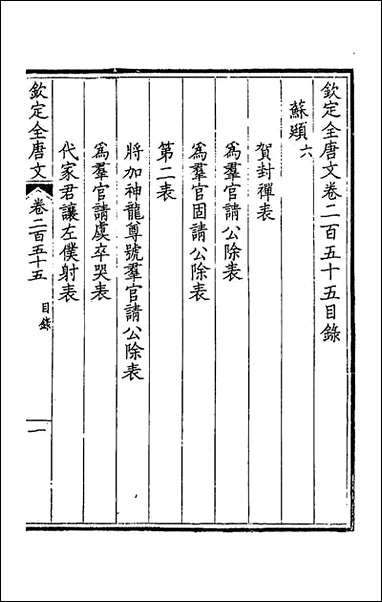 欽定全唐文卷二百五十五目錄
蘇頲六
賀封禪表
為羣官請公除表
為羣官固請公除表
第二表
將加神龍尊號羣官請公除表
為羣官請虞卒哭表
代家君讓左僕射表
欽定全唐文 卷二百五十五 目錄 一